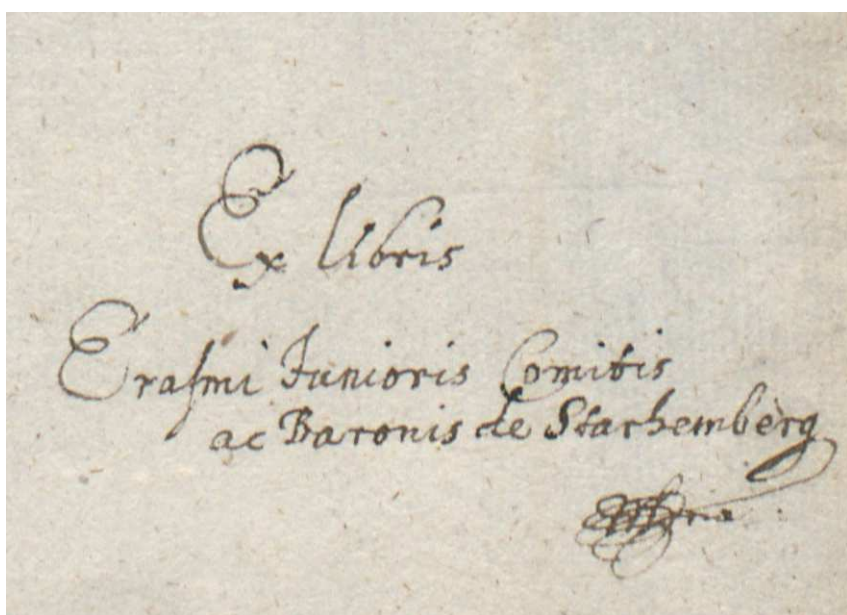 Ex libris
Erasmi Junioris Comitis
ac Baronis de Starhemberg